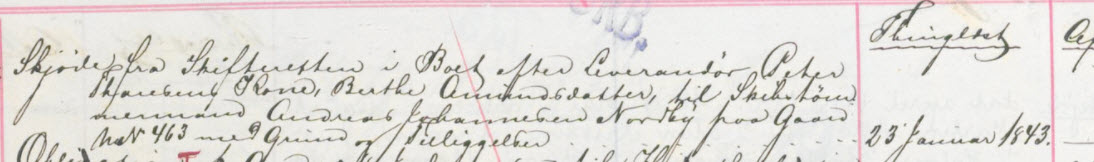 Thinglæst
Skjøde fra Skifteretten i Boet efter Leverandør Peter
Thoresens Kone, Berthe Amundsdatter, til Skibstøm-
mermand Andreas Johannesen Nordby paa Gaard
No 463 med Grund og Tilliggelser
23 Januar 1843.